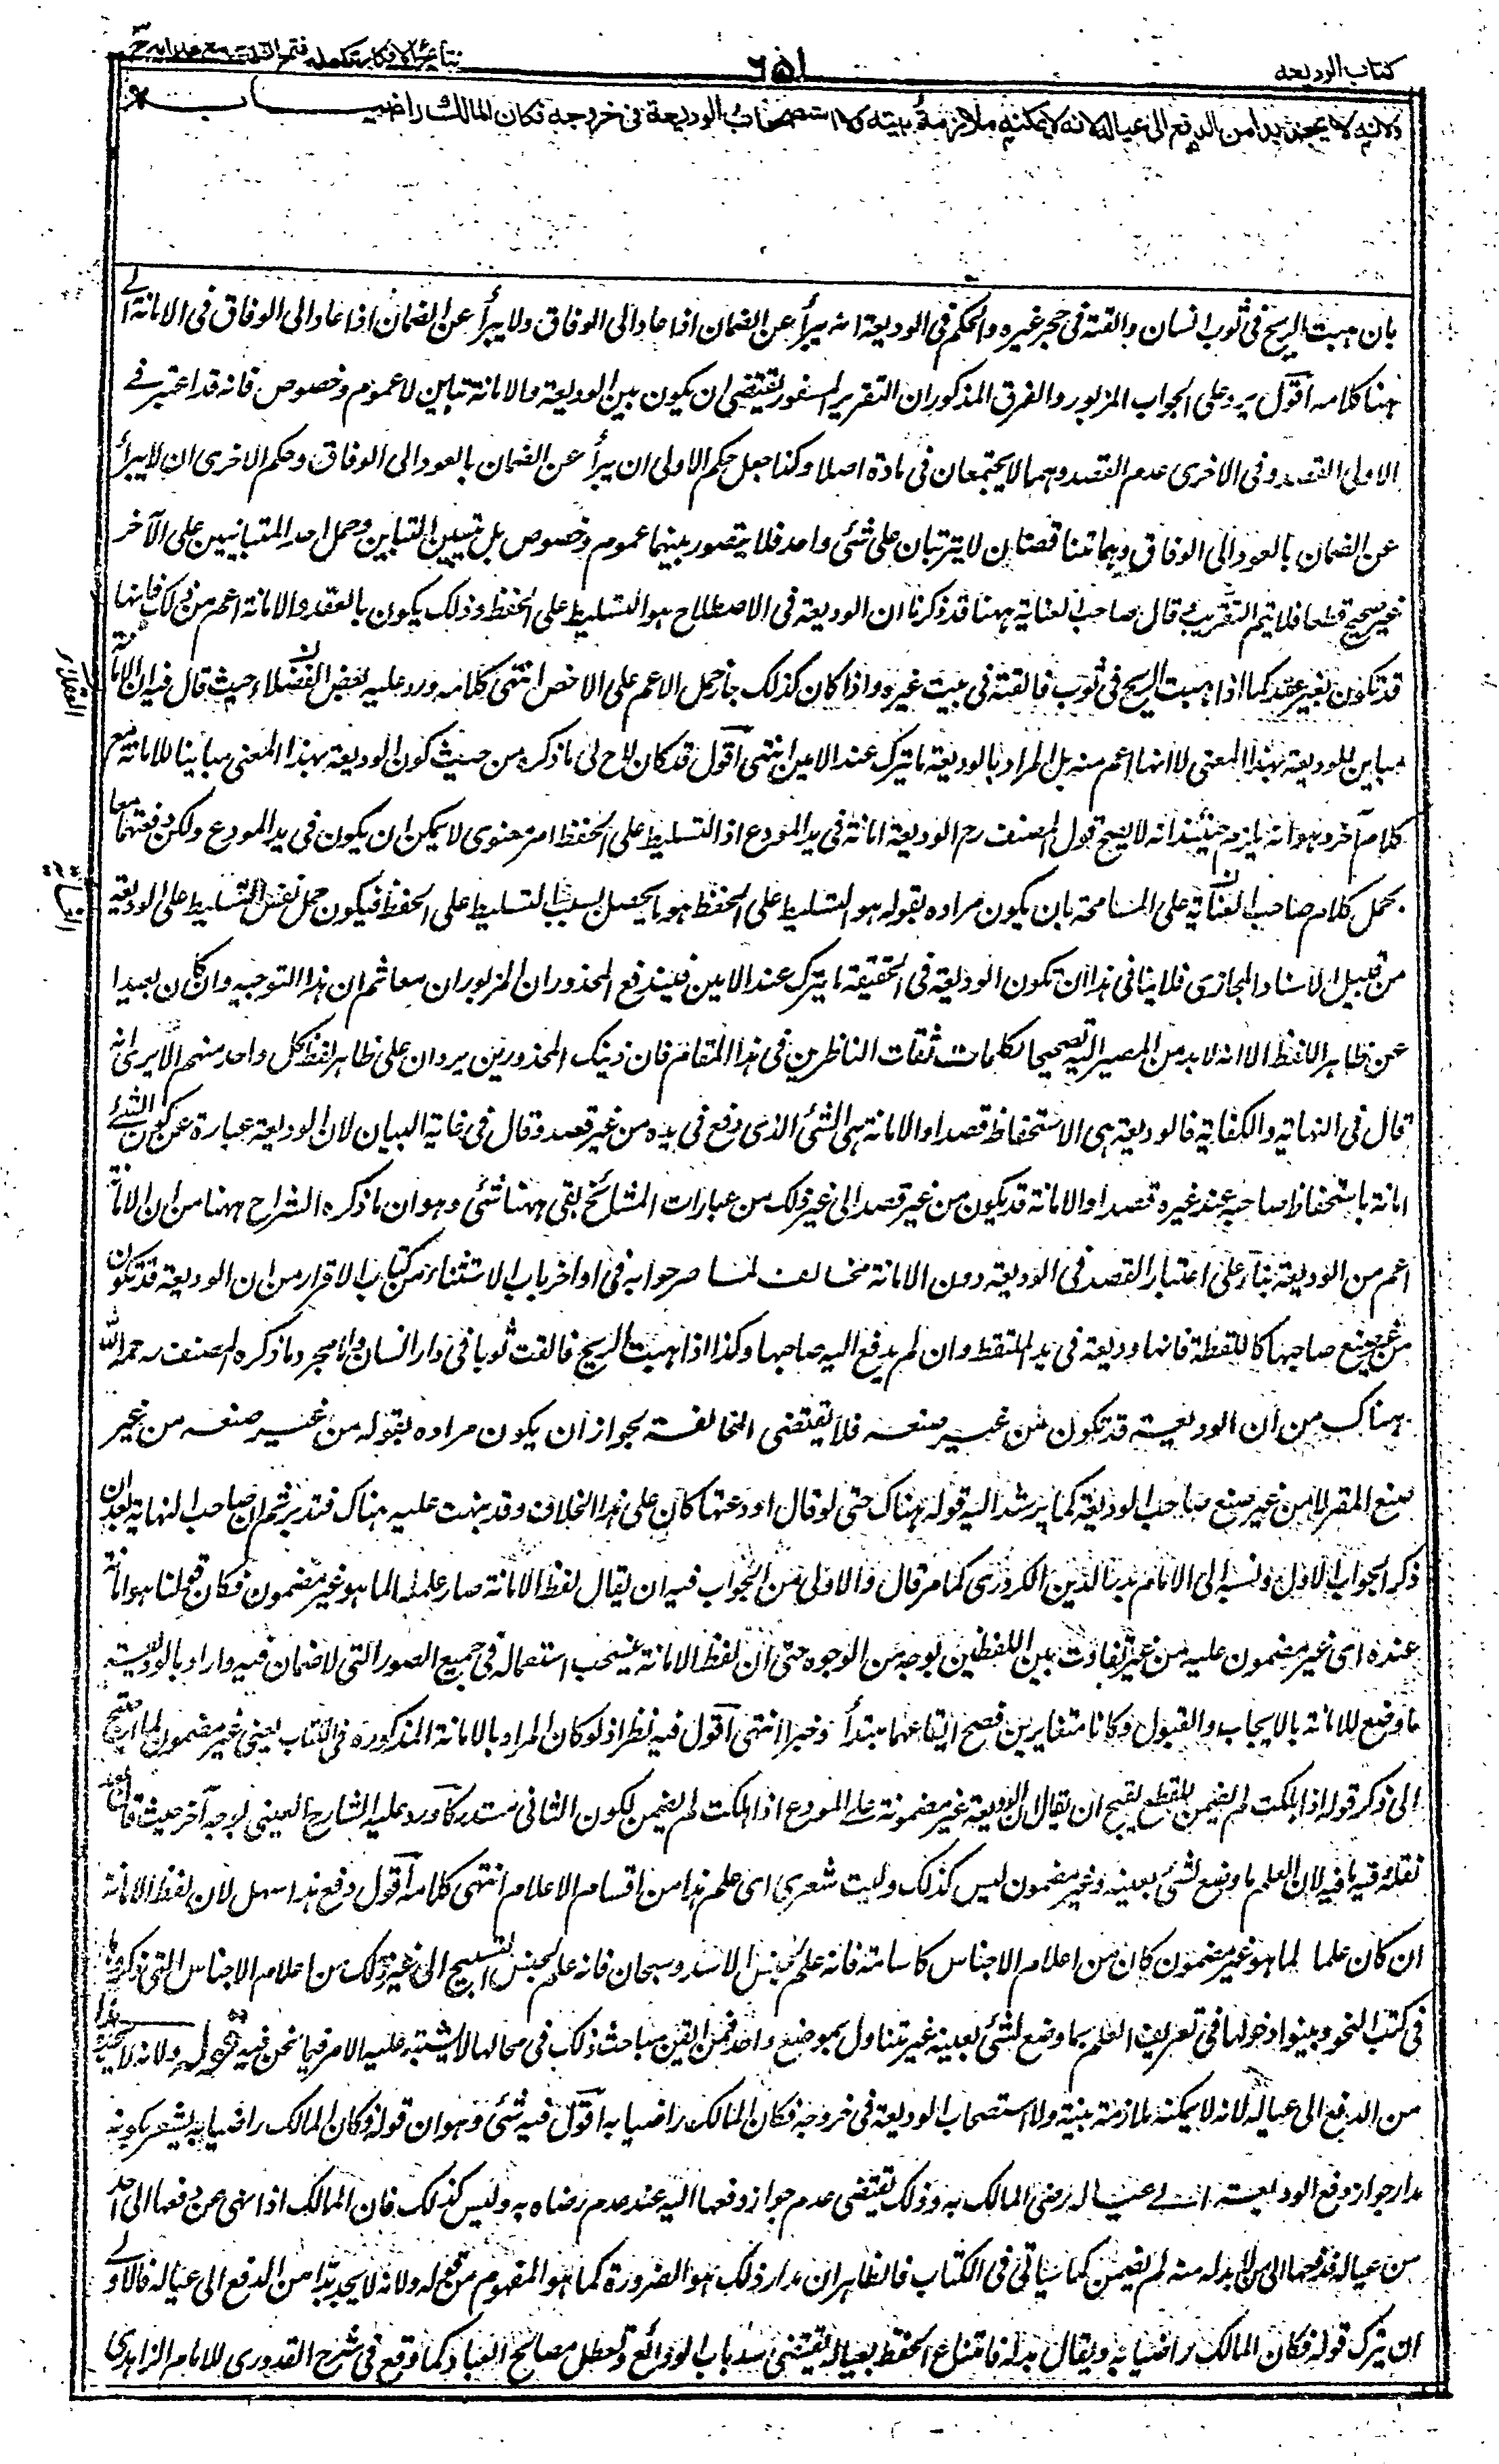 كتاب الوديعه
٦٥١
نتائج الافكار تكمله فتح القدير مع هدايه ج ٣
ولانه لا يجد بدا من الدفع الى عياله لانه لا يمكنه ملازمة بيته ولا استصحاب الوديعة فى خروجه فكان المالك راضيا به
بان هبت الريح فى ثوب انسان والقته فى حجر غيره والحكم فى الوديعة انه يبرأ عن الضمان اذا عاد الى الوفاق ولا يبرأ عن الضمان اذا عاد الى الوفاق فى الامانة الى
ههنا كلامه اقول يرد على الجواب المزبور والفرق المذكور ان التقرير المسفور يقتضى ان يكون بين الوديعة والامانة تباين لا عموم وخصوص فانه قد اعتبر فى
الاولى القصد وفى الاخرى عدم القصد وهما لا يجتمعان فى مادة اصلا وكذا جعل حكم الاولى ان يبرأ عن الضمان بالعود الى الوفاق وحكم الاخرى ان لا يبرأ
عن الضمان بالعود الى الوفاق وهما متناقضان لا يترتبان على شئى واحد فلا يتصور بينهما عموم وخصوص بل تبين التباين وحمل احد المتباينين على الآخر
غير صحيح قطعا فلا يتم التقريب قال صاحب العناية ههنا قد ذكرنا ان الوديعة فى الاصطلاح هو التسليط على الحفظ وذلك يكون بالعقد والامانة اعم من ذلك فانها
قد تكون بغير عقد كما اذا هبت الريح فى ثوب فالقته فى بيت غيره واذا كان كذلك جاز حمل الاعم على الاخص انتهى كلامه ورد عليه بعض الفضلاء حيث قال فيه ان الامانة
مباين للوديعة بهذا المعنى لا انها اعم منه بل المراد بالوديعة ما يترك عند الامين انتهى اقول قد كان لاح لى ما ذكره من حيث كون الوديعة بهذا المعنى مباينا للامانة مع
كلام آخر وهو انه يلزم حينئذ انه لا يصح قول المصنف رح الوديعة امانة فى يد المودع اذ التسليط على الحفظ امر معنوى لا يمكن ان يكون فى يد المودع ولكن دفعتهما معا
بحمل كلام صاحب العناية على المسامحة بان يكون مراده بقوله هو التسليط على الحفظ هو ما يحصل بسبب التسليط على الحفظ فيكون حمل نفس التسليط على الوديعة
من قبيل الاسناد المجازى فلا ينافى هذا ان تكون الوديعة فى الحقيقة ما يترك عند الامين فيندفع المحذوران المزبوران معا ثم ان هذا التوجيه وان كان بعيدا
عن ظاهر اللفظ الا انه لا بد من المصير اليه تصحيحا لكلمات ثقات الناظرين فى هذا المقام فان ذينك المحذورين يردان على ظاهر لفظ كل واحد منهم الا يرى انه
قال فى النهاية والكفاية فالوديعة هى الاستحفاظ قصدا والامانة هى الشئى الذى وقع فى يده من غير قصد وقال فى غاية البيان لان الوديعة عبارة عن كون الشئى
امانة باستحفاظ صاحبه عند غيره قصدا والامانة قد يكون من غير قصد الى غير ذلك من عبارات المشائخ بقى ههنا شئى وهو ان ما ذكره الشراح ههنا من ان الامانة
اعم من الوديعة بناء على اعتبار القصد فى الوديعة دون الامانة مخالف لما صرحوا به فى اواخر باب الاستثناء من كتاب الاقرار من ان الوديعة قد تكون
من غير صنع صاحبها كاللقطة فانها وديعة فى يد الملتقط وان لم يدفع اليه صاحبها وكذا اذا هبت الريح فالقت ثوبا فى دار انسان واما مجرد ما ذكره المصنف رحمه الله
هناك من ان الوديعة قد تكون من غير صنعه فلا يقتضى المخالفة لجواز ان يكون مراده بقوله من غير صنعه من غير
صنع المقر لا من غير صنع صاحب الوديعة كما يرشد اليه قوله هناك حتى لو قال اودعتها كان على هذا الخلاف وقد نبهت عليه هناك فتدبر ثم ان صاحب النهاية بعد ان
ذكر الجواب الاول ونسبه الى الامام بدر الدين الكردرى كما مر قال والاولى من الجواب فيه ان يقال لفظ الامانة صار علما لما هو غير مضمون فكان قولنا هو امانة
عنده اى غير مضمون عليه من غير تفاوت بين اللفظين بوجه من الوجوه حتى ان لفظ الامانة ينسحب استعماله فى جميع الصور التى لا ضمان فيه واراد بالوديعة
ما وضع للامانة بالايجاب والقبول وكانا متغايرين فصح ايقاعهما مبتدأ وخبرا انتهى اقول فيه نظر اذ لو كان المراد بالامانة المذكورة فى الكتاب يعنى غير مضمون لما احتيج
الى ذكر قوله اذا هلكت لم يضمن للقطع بقبح ان يقال ان الوديعة غير مضمونة على المودع اذا هلكت لم يضمن لكون الثانى مستدركا ورد عليه الشارح العينى بوجه آخر حيث قال بعد
نقله فيه ما فيه لان العلم ما وضع لشئى بعينه وغير مضمون ليس كذلك وليت شعرى اى علم هذا من اقسام الاعلام انتهى كلامه اقول دفع هذا سهل لان لفظ الامانة
ان كان علما لما هو غير مضمون كان من اعلام الاجناس كاسامة فانه علم لجنس الاسد وسبحان فانه علم لجنس التسبيح الى غير ذلك من اعلام الاجناس التى ذكروها
فى كتب النحو وبينوا دخولها فى تعريف العلم بما وضع لشئى بعينه غير متناول بموضع واحد فمن اتقن مباحث ذلك فى محالها لا يشتبه عليه الامر فيما نحن فيه قوله ولانه لا يجد بدا
من الدفع الى عياله لانه لا يمكنه ملازمة بيته ولا استصحاب الوديعة فى خروجه فكان المالك راضيا به اقول فيه شئى وهو ان قوله فكان المالك راضيا به يشعر بكونه
مدار جواز دفع الوديعة الى عياله رضى المالك به وذلك يقتضى عدم جواز دفعها اليه عند عدم رضاه به وليس كذلك فان المالك اذا نهى عن دفعها الى احد
من عياله فدفعها الى من لا بد له منه لم يضمن كما سيأتى فى الكتاب فالظاهر ان مدار ذلك هو الضرورة كما هو المفهوم من قوله ولانه لا يجد بدا من الدفع الى عياله فالاولى
ان يترك قوله فكان المالك راضيا به ويقال بدله فامتناع الحفظ بعياله يقتضى سد باب الودائع وتعطل مصالح العباد كما وقع فى شرح القدورى للامام الزاهدى